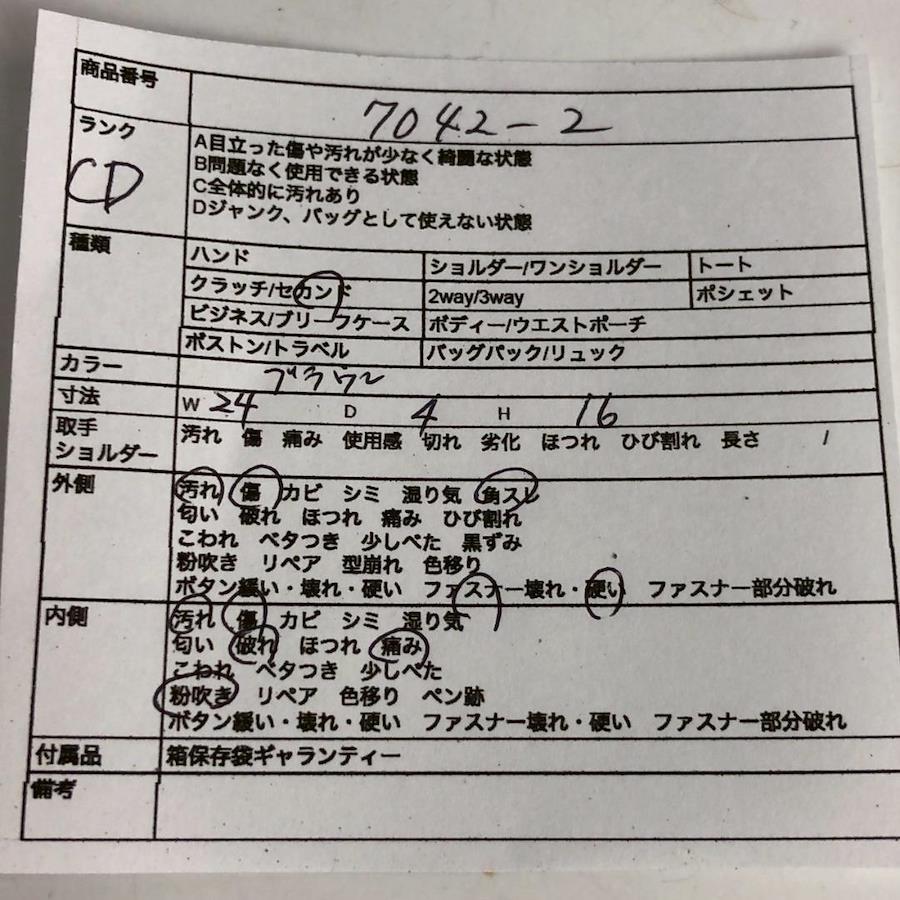 商品番号 7042-2
ランク CD
A目立った傷や汚れが少なく綺麗な状態
B問題なく使用できる状態
C全体的に汚れあり
Dジャンク、バッグとして使えない状態
種類 ハンド ショルダー/ワンショルダー トート
クラッチ/セカンド 2way/3way ポシェット
ビジネス/ブリーフケース ボディー/ウエストポーチ
ボストン/トラベル バッグパック/リュック
カラー ブラウン
寸法 W 24 D 4 H 16
取手 汚れ 傷 痛み 使用感 切れ 劣化 ほつれ ひび割れ 長さ /
ショルダー
外側 汚れ 傷 カビ シミ 湿り気 角スレ
匂い 破れ ほつれ 痛み ひび割れ
こわれ ベタつき 少しべた 黒ずみ
粉吹き リペア 型崩れ 色移り
ボタン緩い・壊れ・硬い ファスナー壊れ・硬い ファスナー部分破れ
内側 汚れ 傷 カビ シミ 湿り気
匂い 破れ ほつれ 痛み
こわれ ベタつき 少しべた
粉吹き リペア 色移り ペン跡
ボタン緩い・壊れ・硬い ファスナー壊れ・硬い ファスナー部分破れ
付属品 箱保存袋ギャランティー
備考